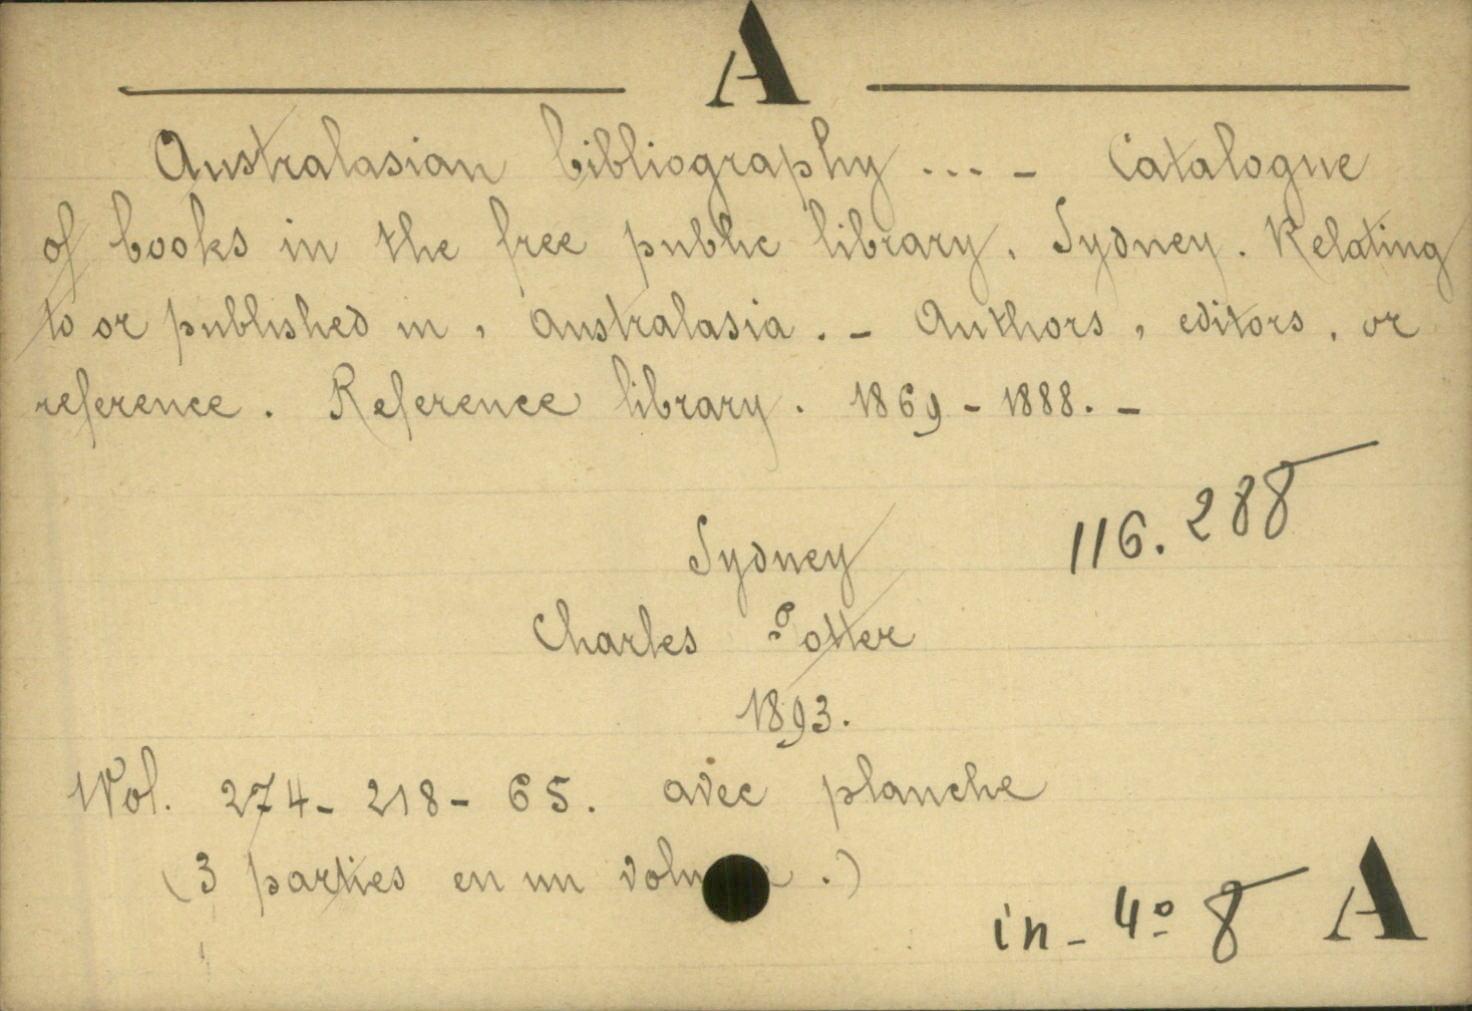 A
Australasian bibliography ... - Catalogue
of books in the free public library, Sydney. Relating
to or published in, Australasia. - Authors, editors, or
reference. Reference library. 1869 - 1888. -
Sydney
116.288
Charles Potter
1893.
1 Vol. 274 - 218 - 65. avec planche
(3 parties en un volume.)
in-4º 8 A